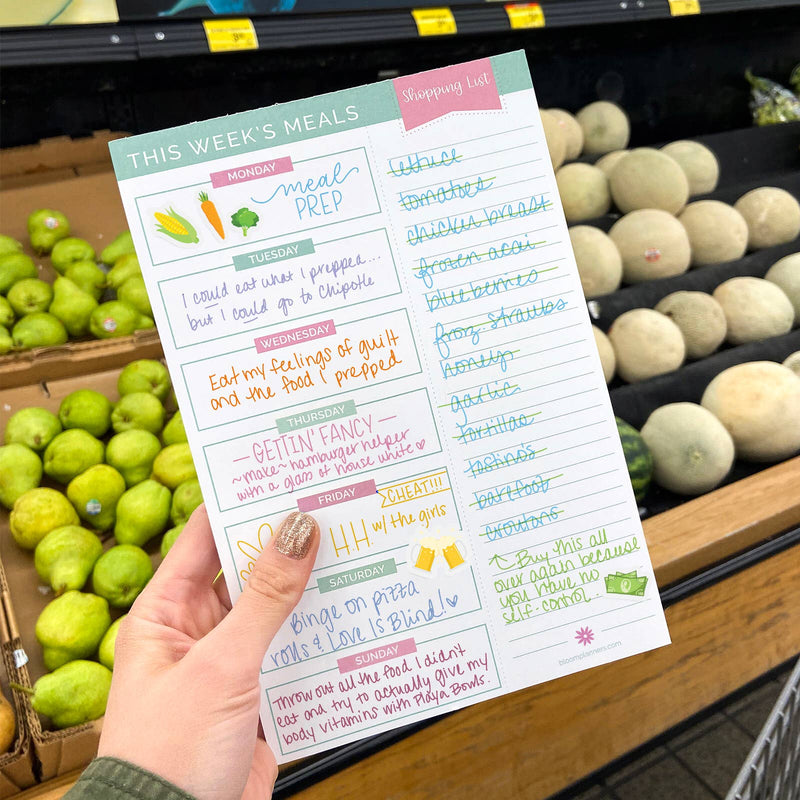 THIS WEEK'S MEALS
MONDAY
meal
PREP
TUESDAY
I could eat what I prepped...
but I could go to Chipotle
WEDNESDAY
Eat my feelings of guilt
and the food I prepped
THURSDAY
- GETTIN' FANCY -
~make~ hamburger helper
with a glass of house white
FRIDAY
CHEAT!!!
H.H w/ the girls
SATURDAY
Binge on pizza
rolls & Love Is Blind!
SUNDAY
Throw out all the food I didn't
eat and try to actually give my
body vitamins with Playa Bowls.
Shopping List
lettuce
tomatoes
chicken breast
frozen acai
blueberries
froz straubs
honey
garlic
tortillas
tostinos
barefoot
croutons
Buy this all
over again because
you have no
self-control.
bloomplanners.com